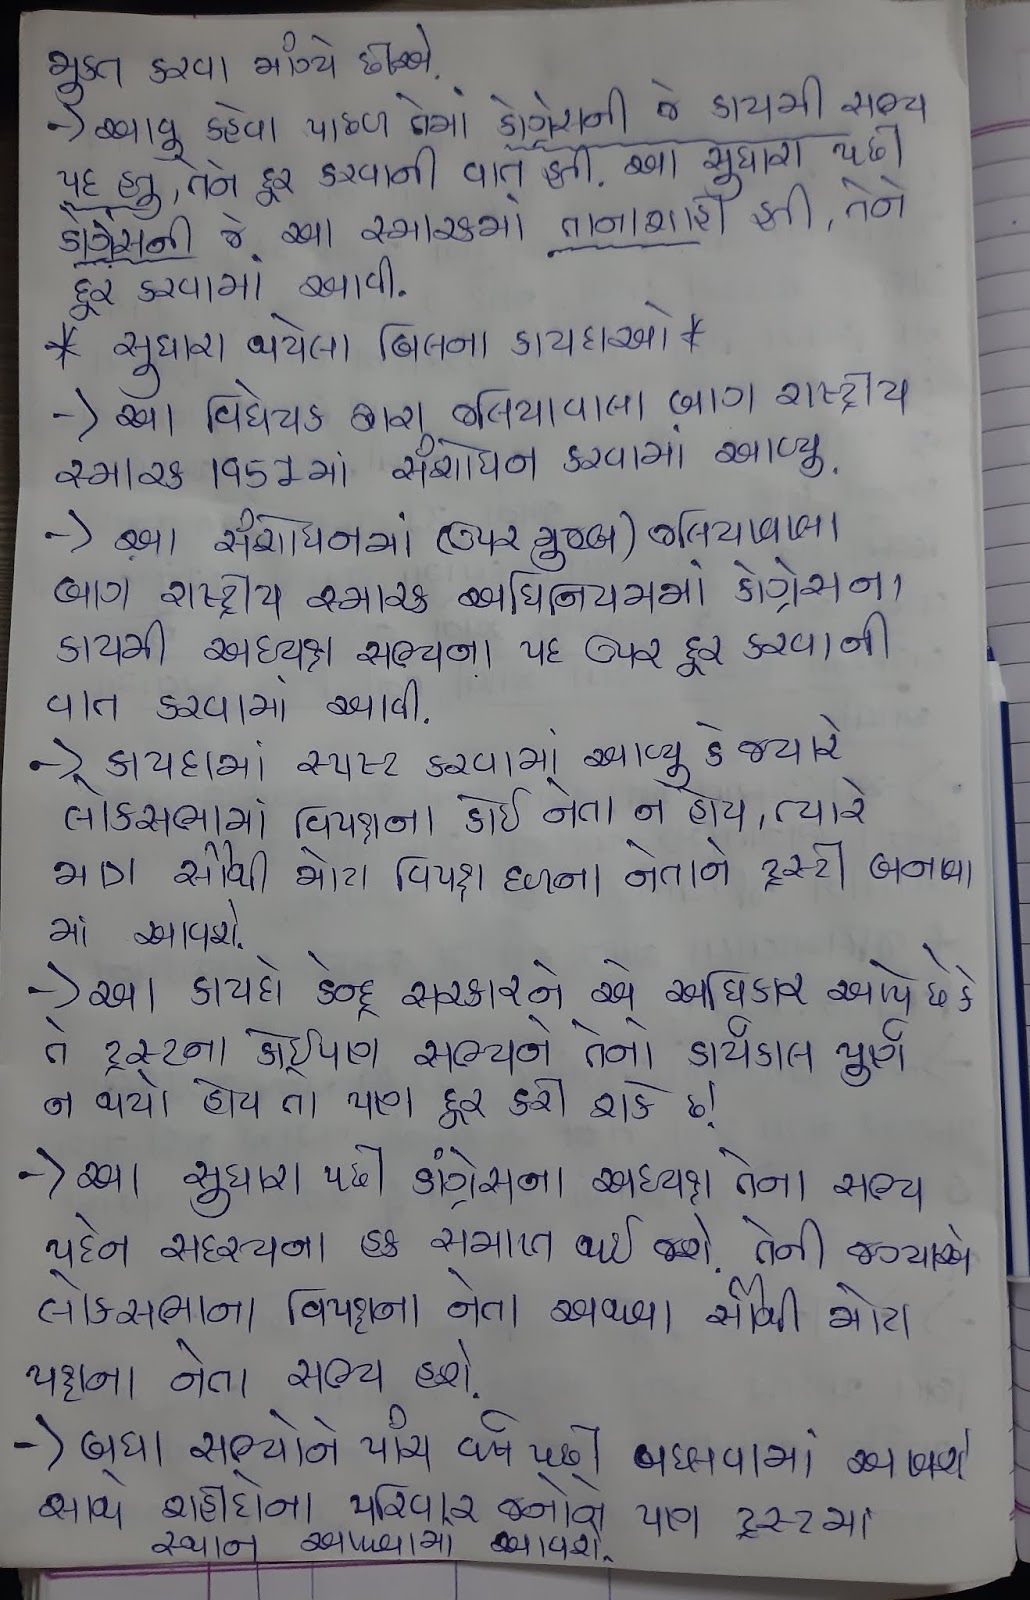 મુક્ત કરવા માંગ્યે છીએ.
-> આવુ કહેવા પાછળ તેમાં કોંગ્રેસની જે કાયમી સભ્ય
પદ હતુ, તેને દૂર કરવાની વાત હતી. આ સુધારા પછી
કોંગ્રેસની જે આ સ્મારકમાં તાનાશાહી હતી, તેને
દૂર કરવામાં આવી.
* સુધારા થયેલા બિલના કાયદાઓ *
-> આ વિધેયક દ્વારા જલિયાવાલા બાગ રાષ્ટ્રીય
સ્મારક 1951માં સંશોધન કરવામાં આવ્યુ.
-> આ સંશોધનમાં (ઉપર મુજબ) જલિયાવાલા
બાગ રાષ્ટ્રીય સ્મારક અધિનિયમમાં કોંગ્રેસના
કાયમી અધ્યક્ષ સભ્યના પદ ઉપર દૂર કરવાની
વાત કરવામાં આવી.
-> કાયદામાં સ્પષ્ટ કરવામાં આવ્યુ કે જ્યારે
લોકસભામાં વિપક્ષના કોઈ નેતા ન હોય, ત્યારે
સૌથી મોટા વિપક્ષ દળના નેતાને ટ્રસ્ટી બનાવા
માં આવશે.
-> આ કાયદો કેન્દ્ર સરકારને એ અધિકાર આપે છે કે
તે ટ્રસ્ટના કોઈપણ સભ્યને તેનો કાર્યકાલ પૂર્ણ
ન થયો હોય તો પણ દૂર કરી શકે છે!
-> આ સુધારા પછી કોંગ્રેસના અધ્યક્ષ તેના સભ્ય
પદેન સદસ્યના હક સમાપ્ત થઈ જશે. તેની જગ્યાએ
લોકસભાના વિપક્ષના નેતા અથવા સૌથી મોટા
પક્ષના નેતા સભ્ય હશે.
-> બધા સભ્યોને પાંચ વર્ષ પછી બદલવામાં આવશે
સાથે શહીદોના પરિવાર જનોને પણ ટ્રસ્ટમાં
સ્થાન આપવામાં આવશે.